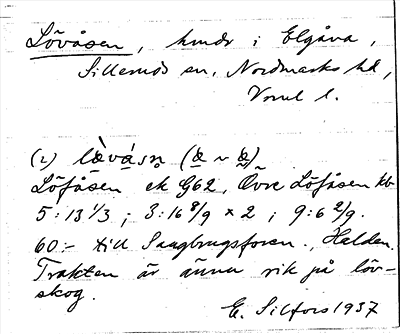 Lövåsen, hmdr i Elgåva,
Sillerud sn, Nordmarks hd,
Vrml l.
(1) lὲvá̀sn̥ (æ ~ æ)
Löfåsen ek G62, Övre Löfåsen kb
5:13 1/3; 3:16 8/9 x 2; 9:6 2/9.
60:- till Saugbrugsforen., Halden.
Trakten är ännu rik på löv-
skog.
E. Silfors 1937